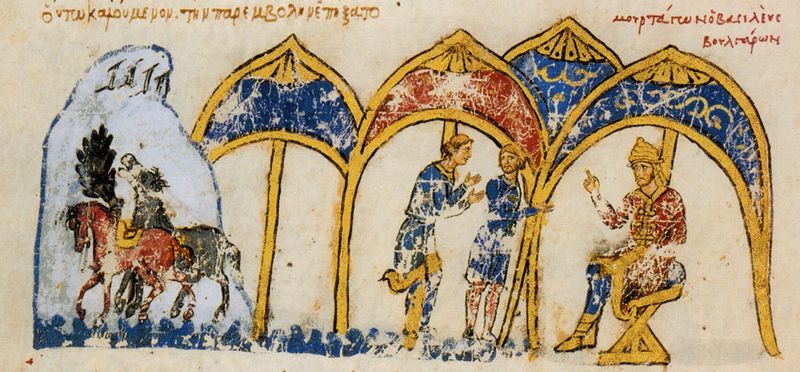 οὕτω καλούμενον · τὴν παρεμβολὴν ἐπήξατο
μουρτάγων ὁ βασιλεὺς
βουλγάρων